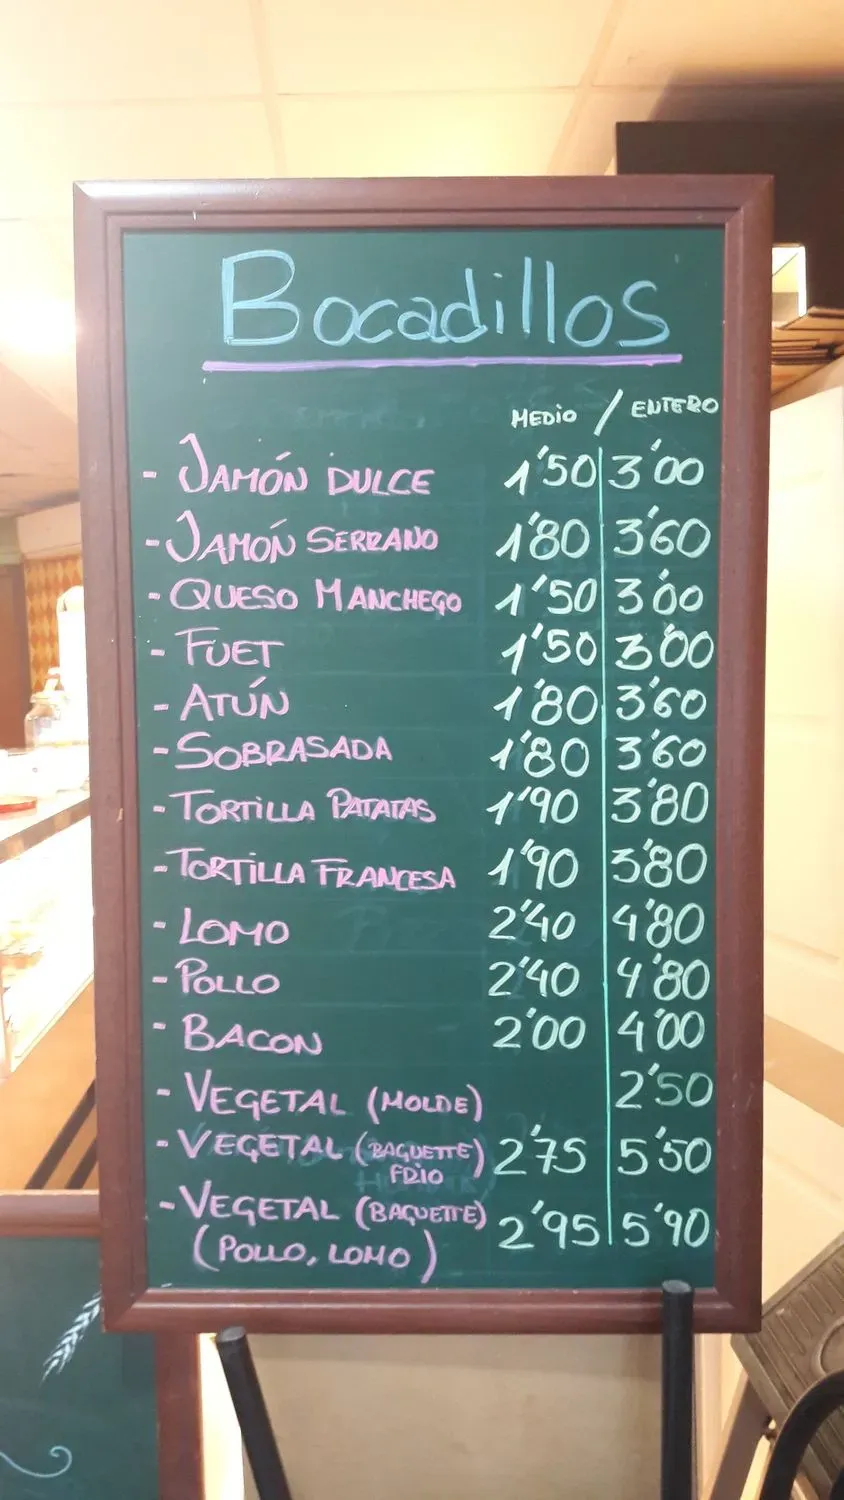 Bocadillos
MEDIO / ENTERO
- JAMÓN DULCE 1'50 3'00
- JAMÓN SERRANO 1'80 3'60
- QUESO MANCHEGO 1'50 3'00
- FUET 1'50 3'00
- ATÚN 1'80 3'60
- SOBRASADA 1'80 3'60
- TORTILLA PATATAS 1'90 3'80
- TORTILLA FRANCESA 1'90 3'80
- LOMO 2'40 4'80
- POLLO 2'40 4'80
- BACON 2'00 4'00
- VEGETAL (MOLDE) 2'50
- VEGETAL (BAGUETTE) 2'75 5'50
FRIO
- VEGETAL (BAGUETTE) 2'95 5'90
(POLLO, LOMO)